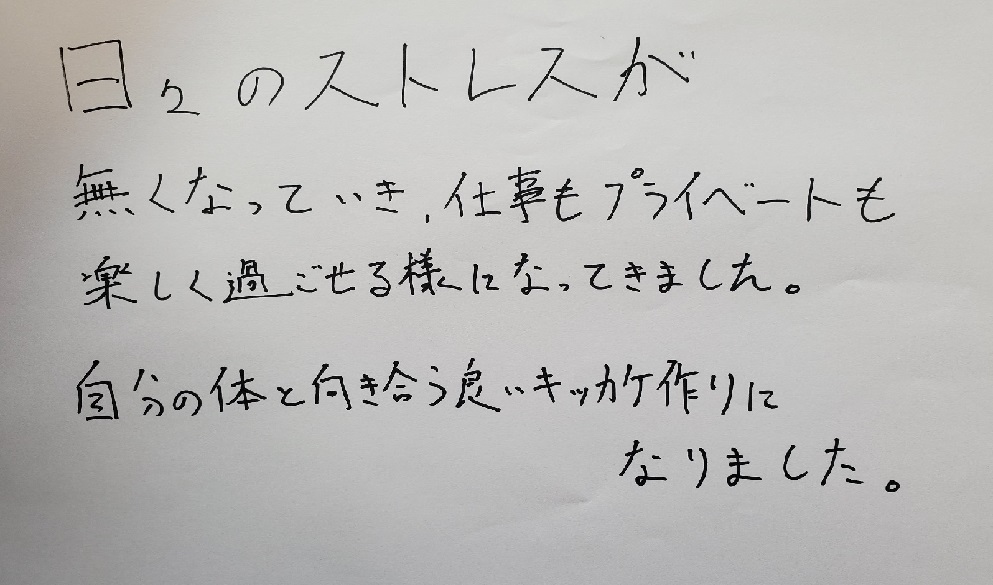 日々のストレスが
無くなっていき、仕事もプライベートも
楽しく過ごせる様になってきました。
自分の体と向き合う良いキッカケ作りに
なりました。